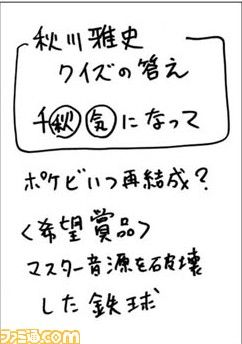 秋川雅史
クイズの答え
千秋気になって
ポケビいつ再結成?
<希望賞品>
マスター音源を破壊
した鉄球
ファミ通.com